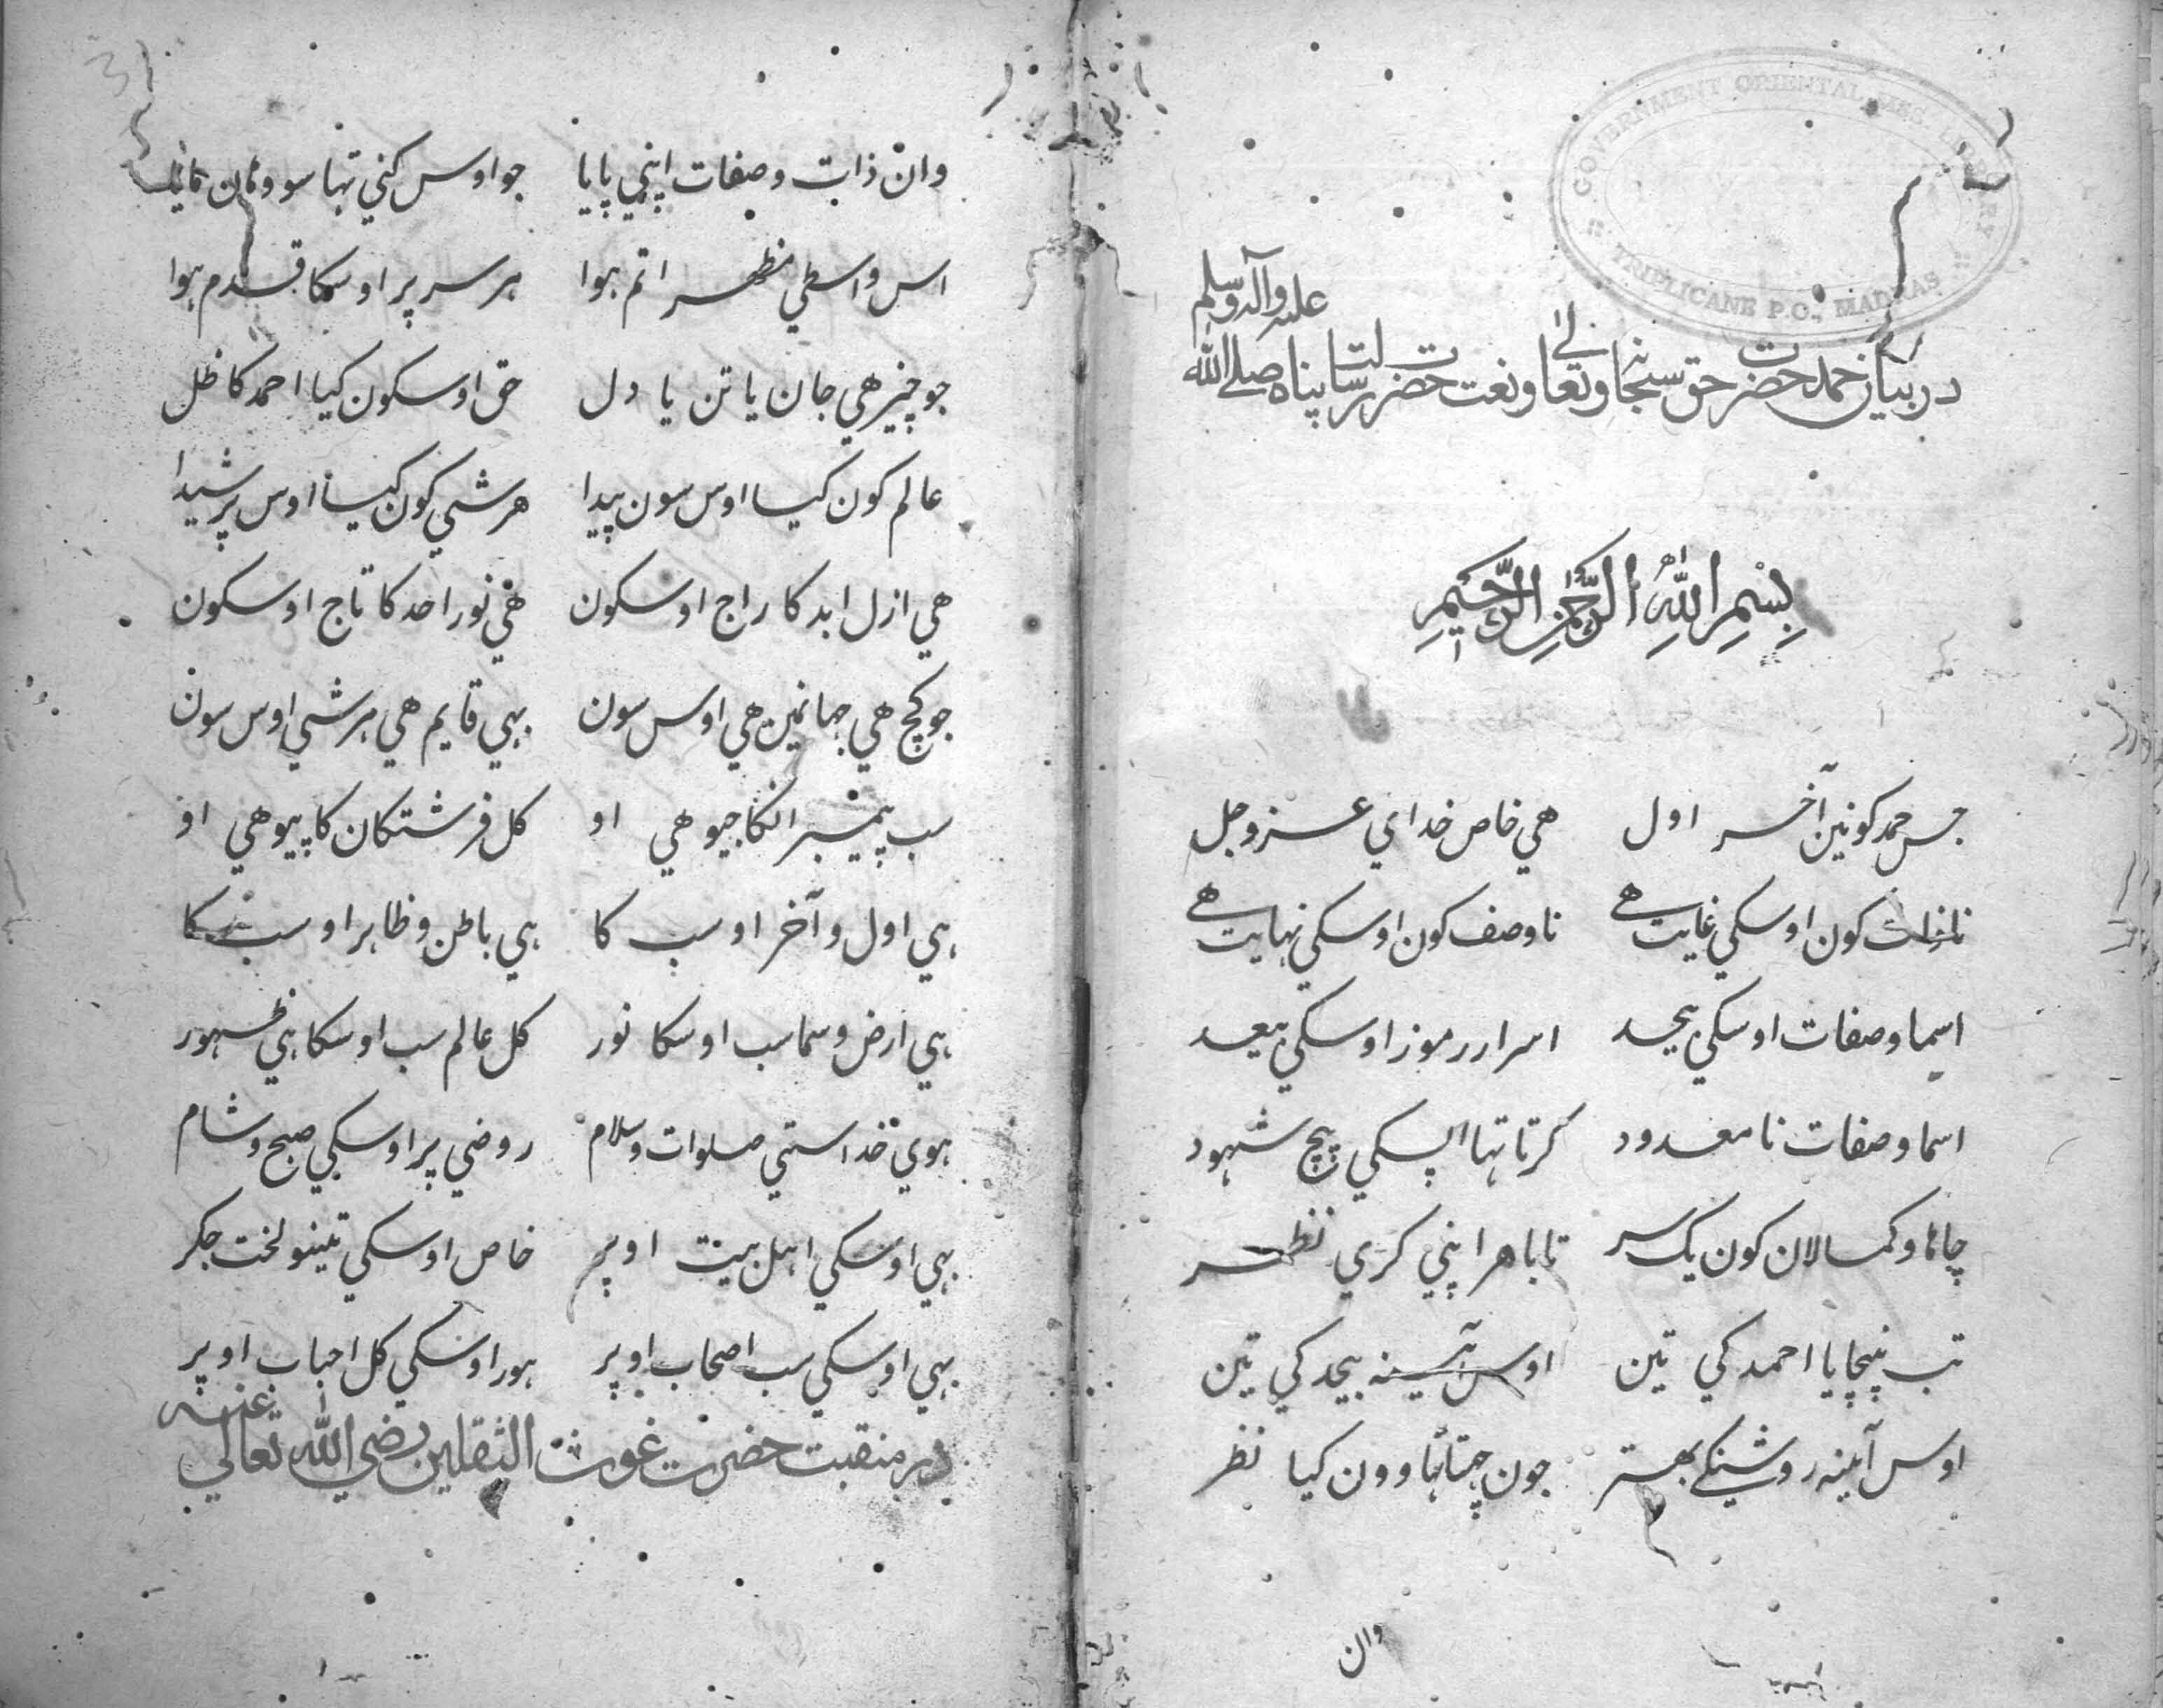 GOVERNMENT ORIENTAL MSS. LIBRARY
TRIPLICANE P.O., MADRAS
در بیان حمد حضرت حق سبحانه وتعالے ونعت حضرت رسالت پناه صلے الله علیه وآله وسلم
بِسْمِ اللّٰهِ الرَّحْمٰنِ الرَّحِيمِ
جس حمد کو نین آخر اول هي خاص خداي عز وجل
نا ذات کون اوسکي غایت هے نا وصف کون اوسکي نهایت هے
اسما وصفات اوسکي بیحد اسرار رموز اوسکي بیعد
اسما وصفات نا معدود کرتا تها اپسکي بیچ شهود
چاها و کمالان کون یک سر تا باهر اپني کري نظر
تب نپچایا احمد کي تین اوس آئینه بیحد کي تین
اوس آئینه روشنکے بهتر جون چتا تها وون کیا نظر
وان
31
وان ذات وصفات اپني پایا جو اوس کني تها سو وهان
اس واسطي مظهر اتم هوا هر سر پر اوسکا قدم هوا
جو چیز هي جان یا تن یا دل حق اوسکون کیا احمد کا ظل
عالم کون کیا اوس سون پیدا هر شي کون کیا اوس پر شیدا
هي ازل ابد کا راج اوسکون هي نور احد کا تاج اوسکون
جو کچ هي جهانمین هي اوس سون بهي قایم هي هر شي اوس سون
سب پیمبرانکا جیو هي او کل فرشتکان کا پیو هي او
هي اول وآخر او سب کا هي باطن وظاهر او سب کا
هي ارض وسما سب اوسکا نور کل عالم سب اوسکا هي ظهور
هوي خدا ستي صلوات وسلام روضي پر اوسکي صبح وشام
بهي اوسکي اهل بیت اوپر خاص اوسکي تینو لخت جکر
بهي اوسکي سب اصحاب اوپر هور اوسکي کل احباب اوپر
در منقبت حضرت غوث الثقلین رضي الله تعالي عنه